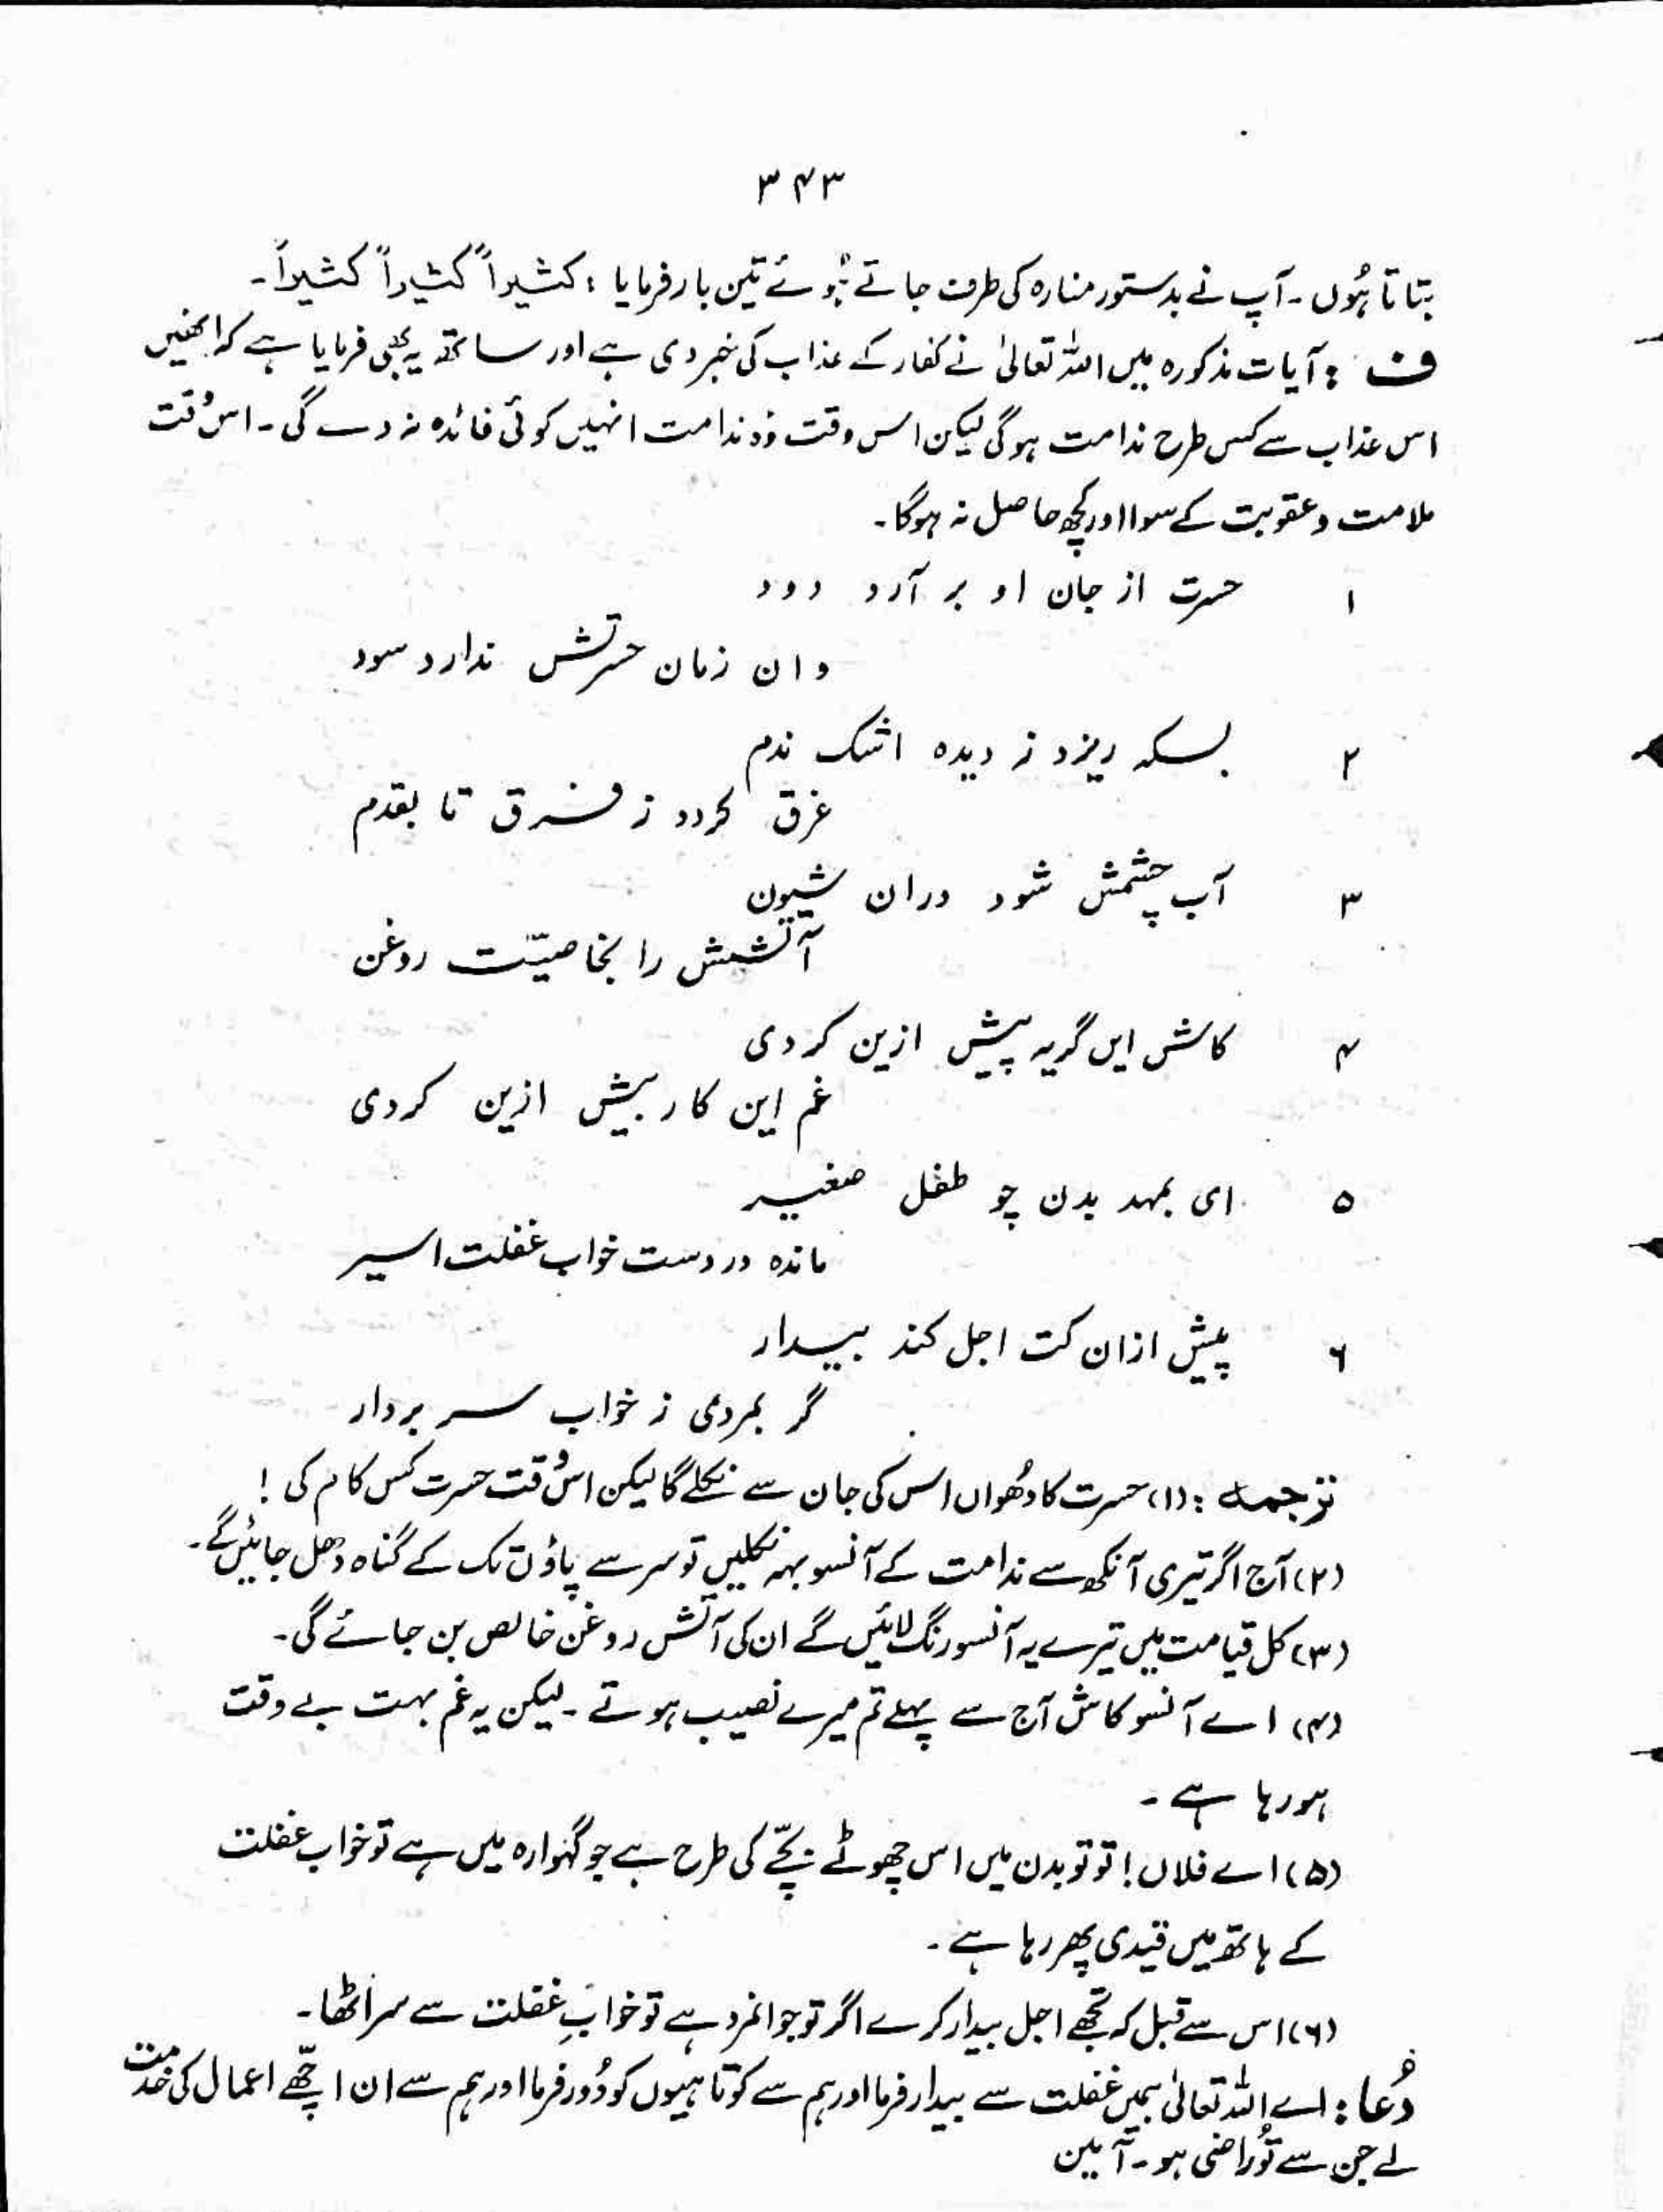 ۳۴۳
بتاتا ہُوں ۔ آپ نے بدستور منارہ کی طرف جاتے ہُوئے تین بار فرمایا : کثیراً کثیراً کثیراً ۔
ف : آیات مذکورہ میں اللہ تعالیٰ نے کفار کے عذاب کی خبر دی ہے اور ساتھ یہ بھی فرمایا ہے کہ انھیں
اس عذاب سے کس طرح ندامت ہوگی لیکن اس وقت وُہ ندامت انہیں کوئی فائدہ نہ دے گی ۔ اس وُقت
ملامت و عقوبت کے سوا اور کچھ حاصل نہ ہوگا ۔
۱ حسرت از جان او بر آرد دود
وان زمان حسرتش ندارد سود
۲ بسکہ ریزد ز دیدہ اشک ندم
غرق گردد ز فرق تا بقدم
۳ آب چشمش شود دران شیون
آتشش را بخاصیّت روغن
۴ کاش ایں گریہ پیش ازین کردی
غم این کار بیش ازین کردی
۵ ای بمہد بدن چو طفل صغیر
ماندہ در دست خواب غفلت اسیر
۶ پیش ازان کت اجل کند بیدار
گر بمردی ز خواب سر بردار
ترجمہ : (۱) حسرت کا دھُواں اس کی جان سے نکلے گا لیکن اس وُقت حسرت کس کام کی !
(۲) آج اگر تیری آنکھ سے ندامت کے آنسو بہہ نکلیں تو سر سے پاؤں تک کے گناہ دھل جائیں گے ۔
(۳) کل قیامت میں تیرے یہ آنسو رنگ لائیں گے ان کی آتش روغن خالص بن جائے گی ۔
(۴) اے آنسو کاش آج سے پہلے تم میرے نصیب ہوتے ۔ لیکن یہ غم بہت بے وقت
ہو رہا ہے ۔
(۵) اے فلاں ! تو تو بدن میں اس چھوٹے بچّے کی طرح ہے جو گہوارہ میں ہے تو خواب غفلت
کے ہاتھ میں قیدی پھر رہا ہے ۔
(۶) اس سے قبل کہ تجھے اجل بیدار کرے اگر تو جوانمرد ہے تو خوابِ غفلت سے سر اُٹھا ۔
دُعا : اے اللہ تعالیٰ ہمیں غفلت سے بیدار فرما اور ہم سے کوتاہیوں کو دُور فرما اور ہم سے ان اچھّے اعمال کی خدمت
لے جن سے تُو راضی ہو ۔ آمین